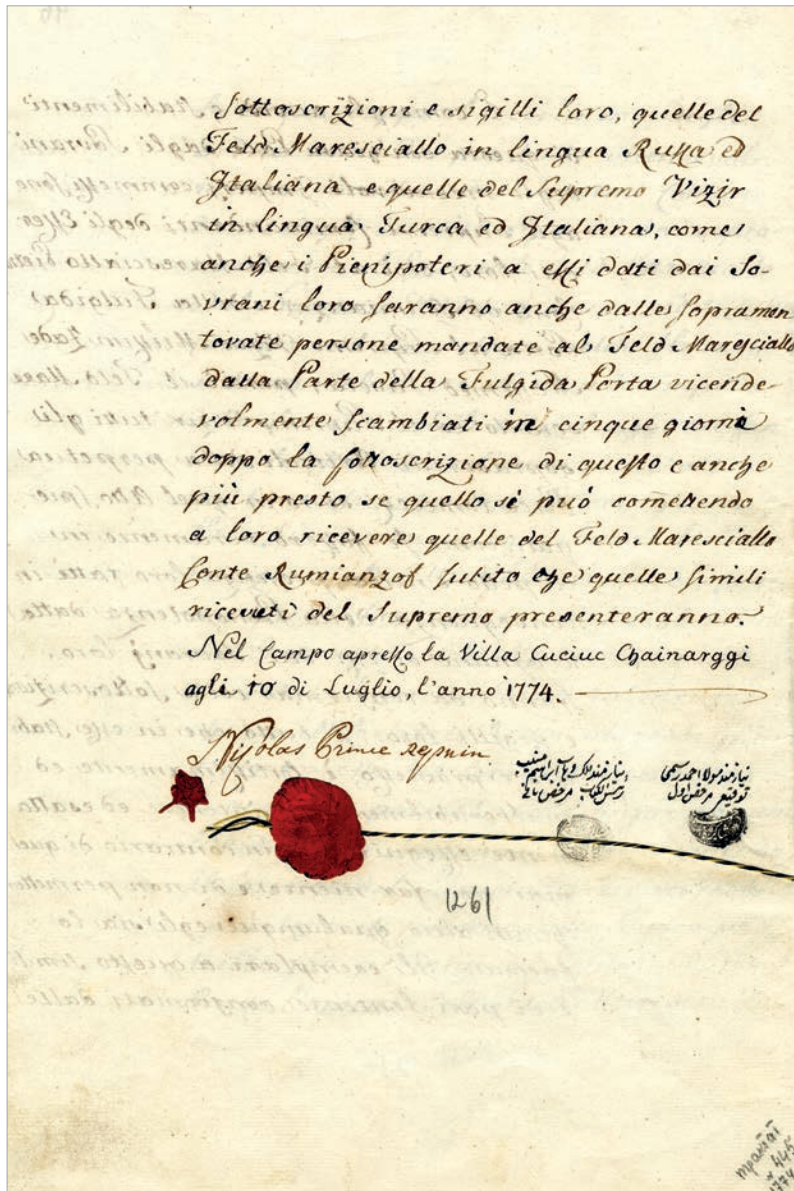 sottoscrizioni e sigilli loro, quelle del
Feld Maresciallo in lingua Russa ed
Italiana e quelle del Supremo Vizir
in lingua Turca ed Italiana, come
anche i Pienipoteri a essi dati dai So-
vrani loro saranno anche dalle sopramen
tovate persone mandate al Feld Maresciallo
dalla Parte della Fulgida Porta vicende-
volmente scambiati in cinque giorni
doppo la sottoscrizione di questo e anche
più presto se quello si può comettendo
a loro ricevere quelle del Feld Maresciallo
Conte Rumianzof subito che quelle simili
ricevuti del Supremo presenteranno.
Nel Campo apresso la Villa Cuciuc Chainarggi
agli 10 di Luglio, l'anno 1774.
Nicolas Prince repnin
نیازمند مولا احمد رسمی
توقیعی مرخص اول
ابراهیم منیب
رئیس الکتاب مرخص ثانی
1261
445
1774